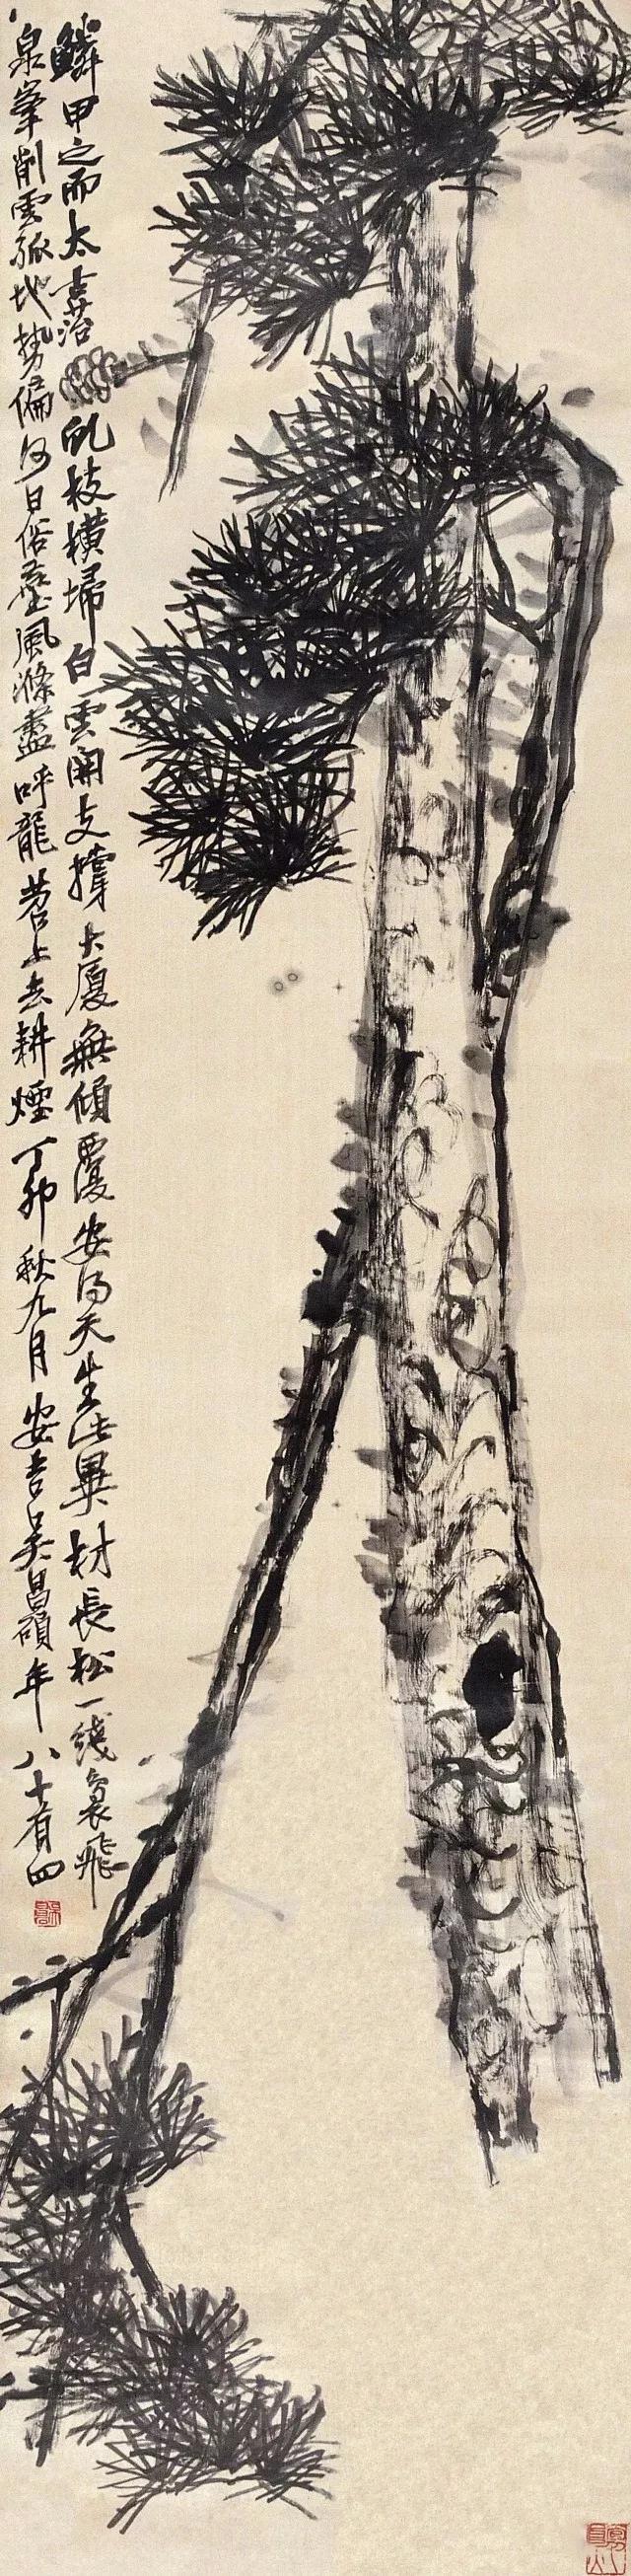 鱗甲之而太古苔虬枝橫掃白雲開支撐大廈無傾覆安得天生此異材長松一綫裊飛
泉峯削雲孤地勢偏何日俗塵風滌盡呼龍苕上去耕煙丁卯秋九月安吉吳昌碩年八十有四